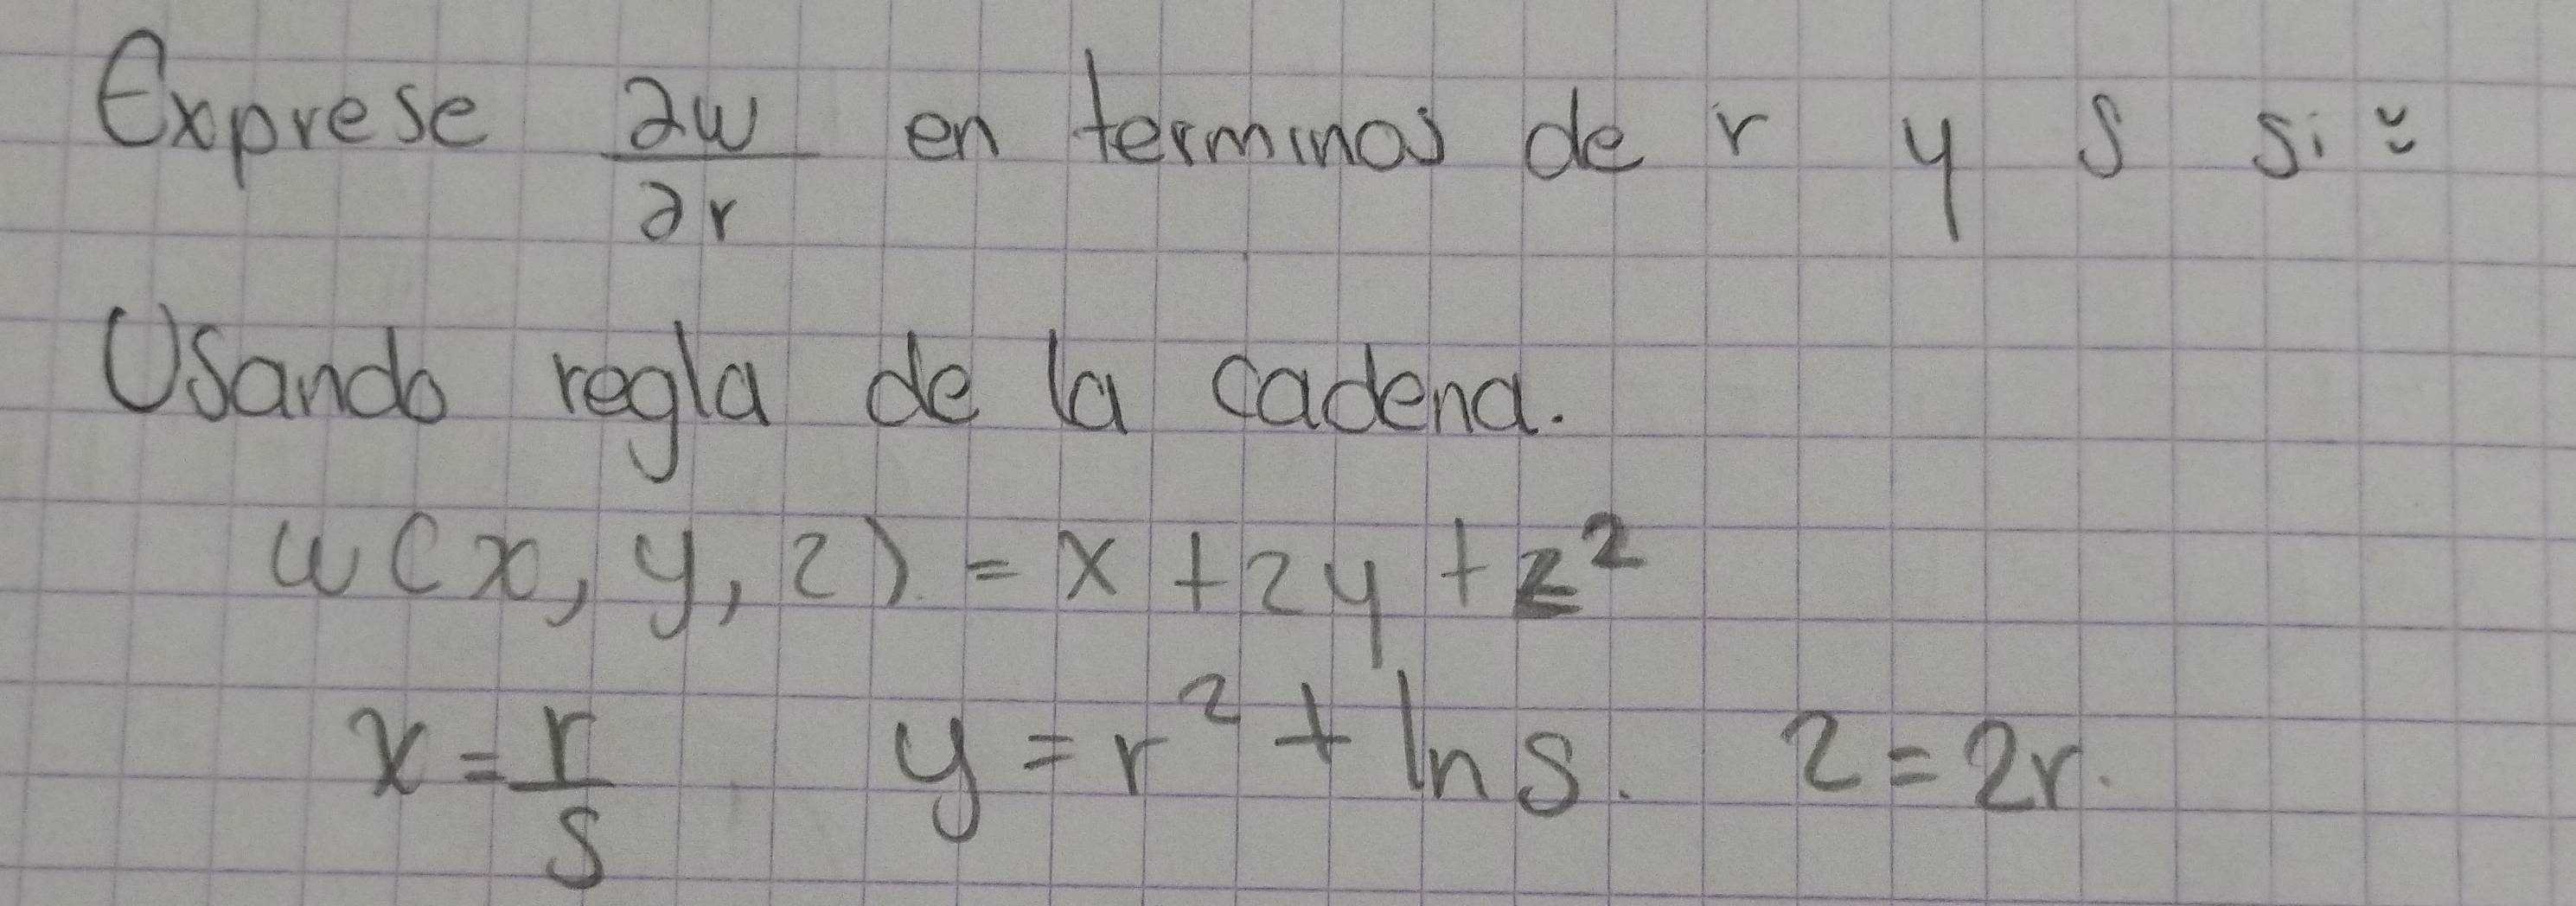 Exprese ∂w/∂r en terminos de r y s si:
Usando regla de la cadena.
w(x, y, z) = x + 2y + z²
x = r/s y = r² + ln s. z = 2r.